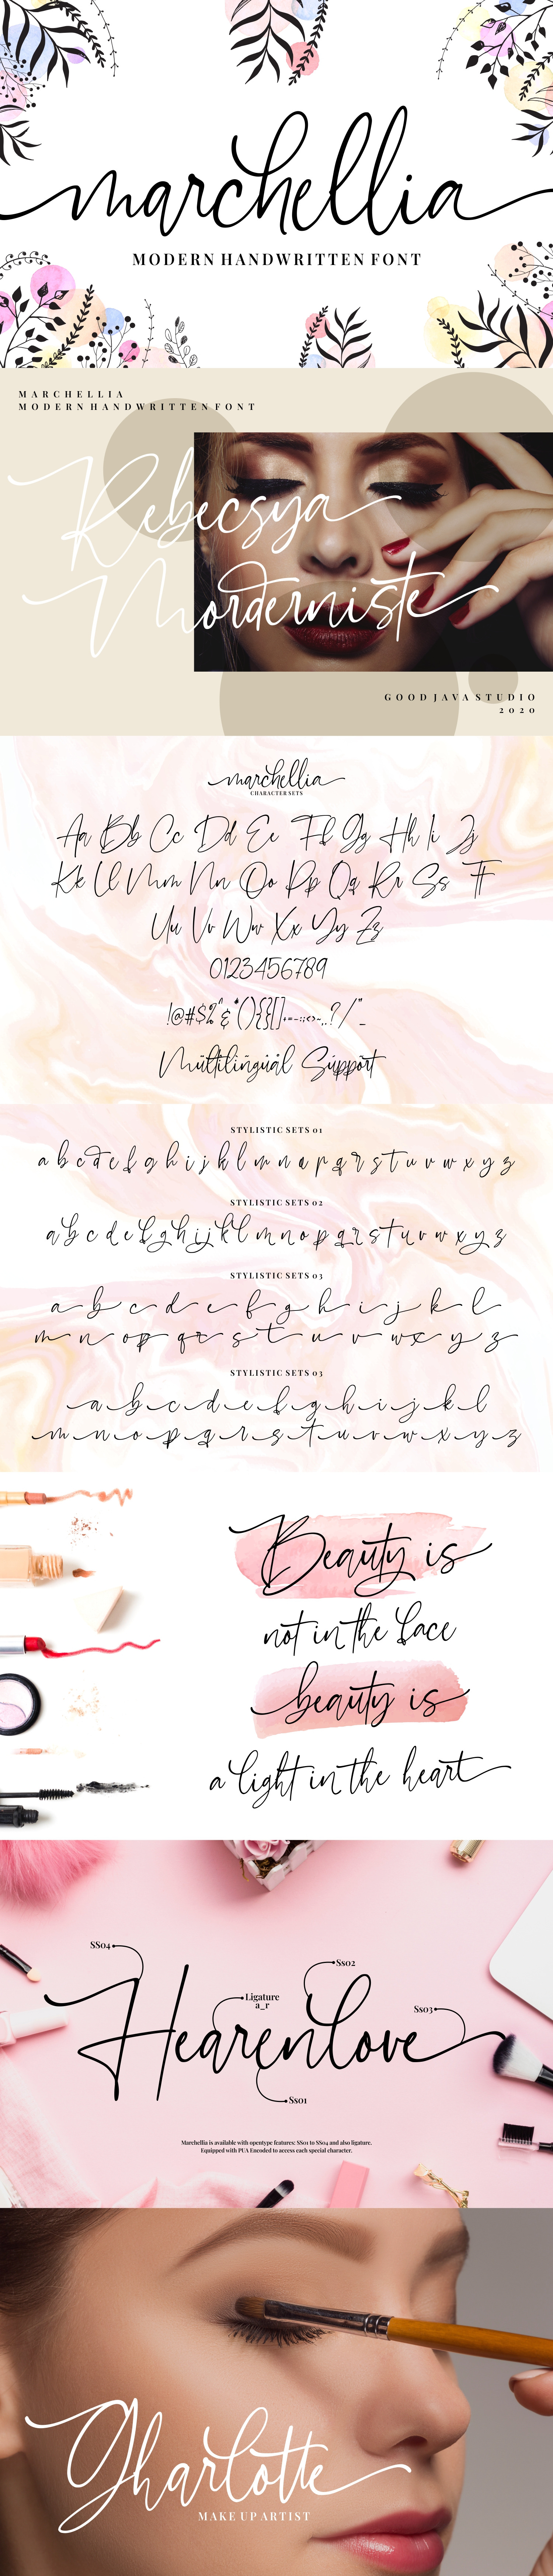 marchellia
MODERN HANDWRITTEN FONT
MARCHELLIA
MODERN HANDWRITTEN FONT
Rebecsya
Morderniste
GOOD JAVA STUDIO
2020
marchellia
CHARACTER SETS
Aa Bb Cc Dd Ee Ff Gg Hh Ii Jj
Kk Ll Mm Nn Oo Pp Qq Rr Ss Tt
Uu Vv Ww Xx Yy Zz
0123456789
Multilingual Support
STYLISTIC SETS 01
a b c d e f g h i j k l m n o p q r s t u v w x y z
STYLISTIC SETS 02
a b c d e f g h i j k l m n o p q r s t u v w x y z
STYLISTIC SETS 03
a b c d e f g h i j k l
m n o p q r s t u v w x y z
STYLISTIC SETS 03
a b c d e f g h i j k l
m n o p q r s t u v w x y z
Beauty is
not in the face
beauty is
a light in the heart
SS04
Ss02
Ligature
a_r
Ss03
Hearenlove
Ss01
Marchellia is available with opentype features: SS01 to SS04 and also ligature.
Equipped with PUA Encoded to access each special character.
Gharlotte
MAKE UP ARTIST